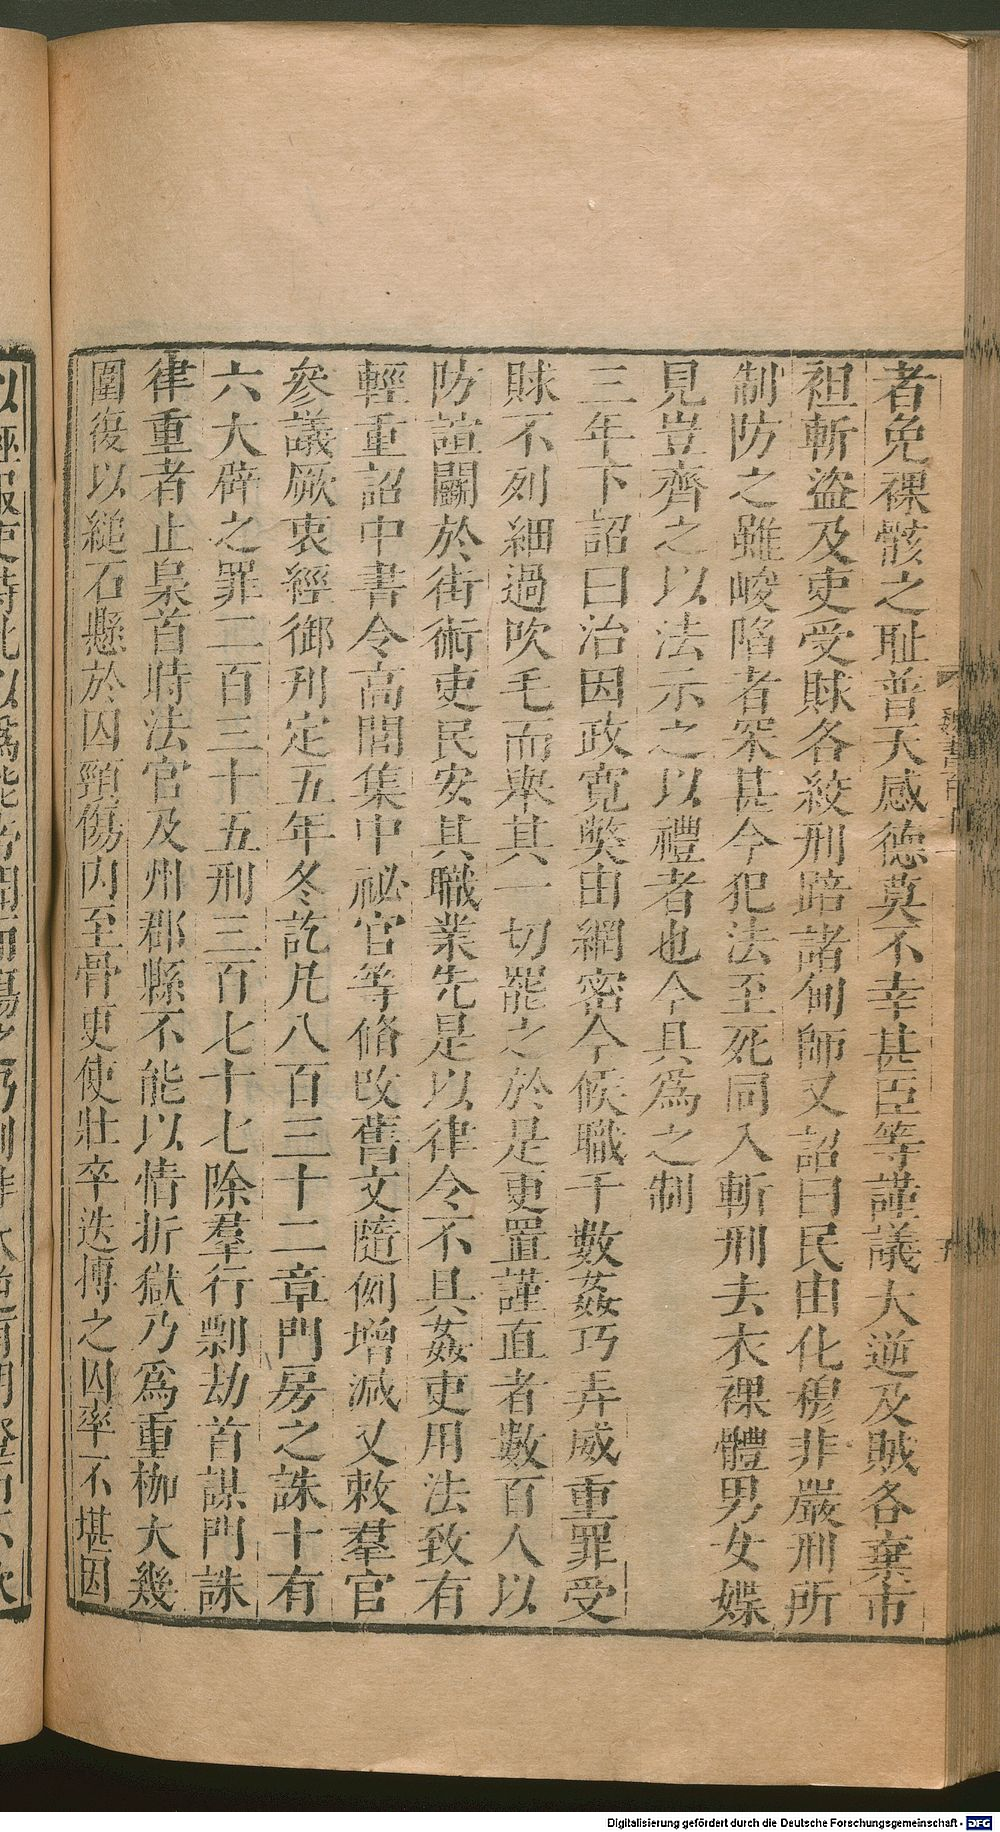 者免裸骸之耻普天感德莫不幸甚臣等謹議大逆及賊各棄市
袒斬盜及吏受賕各絞刑踣諸甸師又詔曰民由化穆非嚴刑所
制防之雖峻陷者罙甚今犯法至死同入斬刑去衣裸體男女媟
見豈齊之以法示之以禮者也今具爲之制
三年下詔曰治因政寬獘由網密今候職千數姦巧弄威重罪受
賕不列細過吹毛而舉其一切罷之於是更置謹直者數百人以
防諠鬭於街術吏民安其職業先是以律令不具姦吏用法致有
輕重詔中書令高閭集中祕官等脩改舊文隨例增減又敕羣官
參議厥衷經御刋定五年冬訖凡八百三十二章門房之誅十有
六大辟之罪二百三十五刑三百七十七除羣行剽劫首謀門誅
律重者止梟首時法官及州郡縣不能以情折獄乃爲重枷大幾
圍復以縋石懸於囚頸傷内至骨更使壯卒迭搏之囚率不堪因
魏書百十一
Digitalisierung gefördert durch die Deutsche Forschungsgemeinschaft - DFG